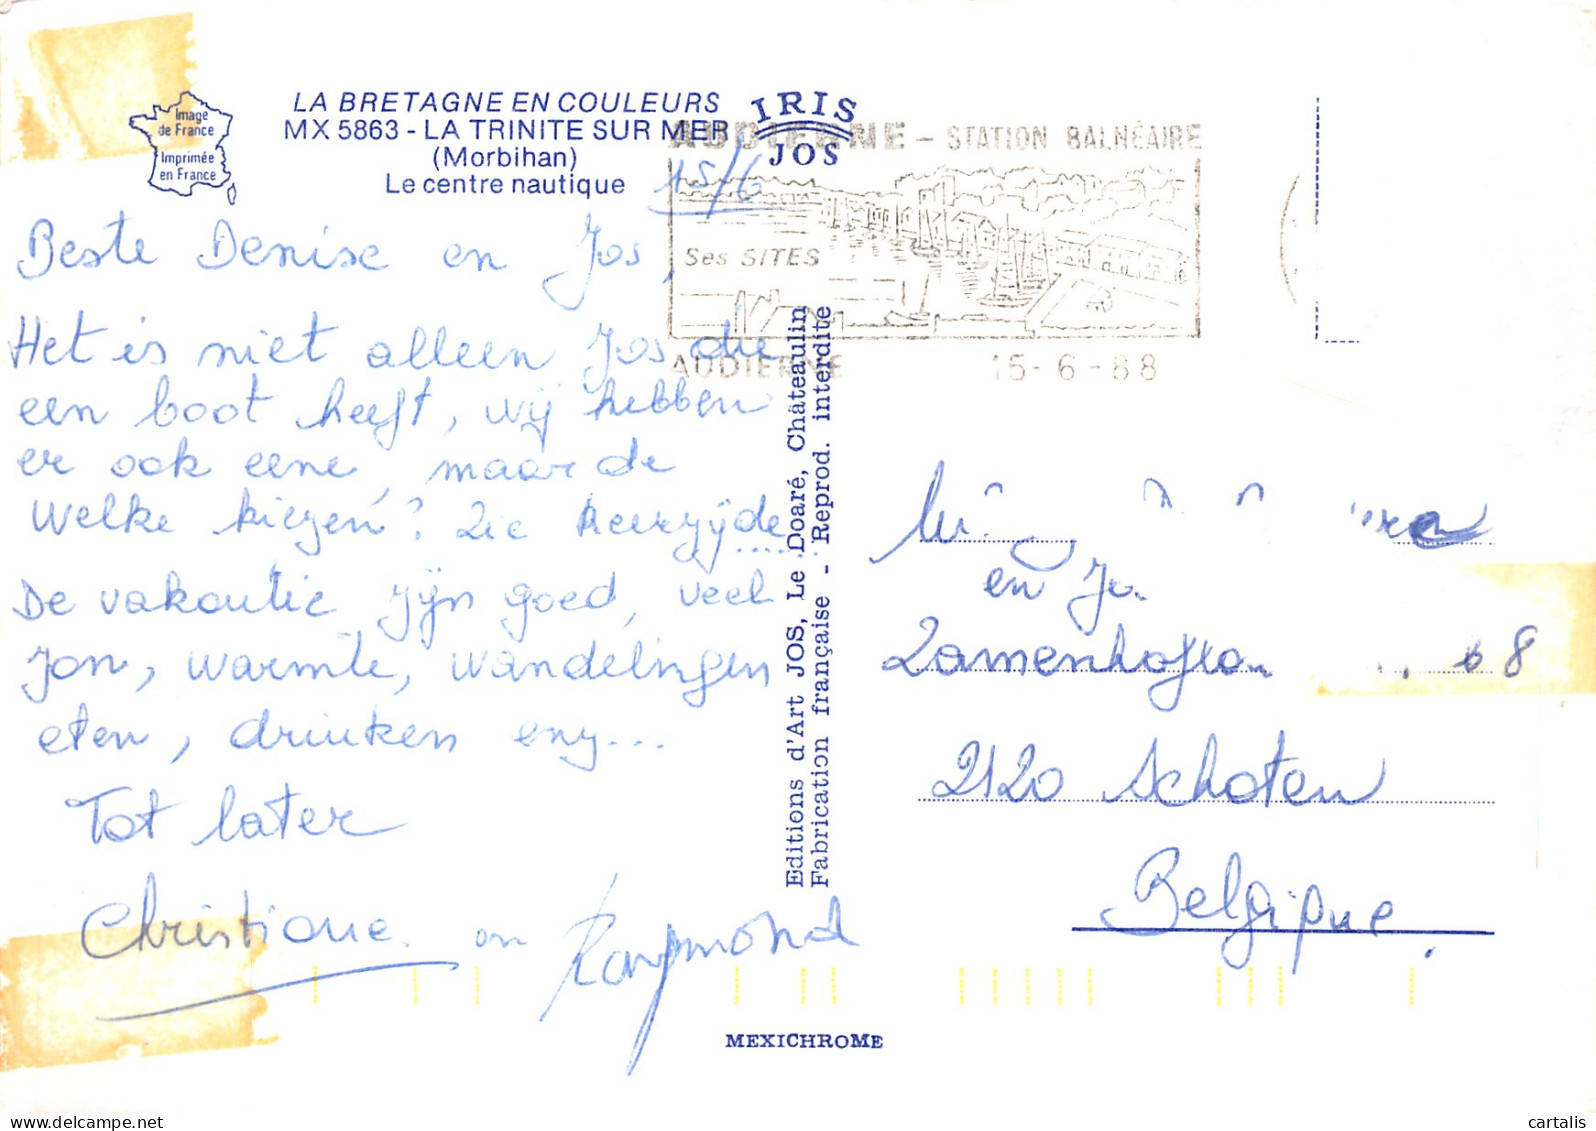 Image
de France
Imprimée
en France
LA BRETAGNE EN COULEURS
MX 5863 - LA TRINITE SUR MER
(Morbihan)
Le centre nautique
IRIS
JOS
AUDIERNE - STATION BALNÉAIRE
Ses SITES
AUDIERNE 15-6-88
15/6
Beste Denise en Jos,
Het is niet alleen Jos die
een boot heeft, wij hebben
er ook eene, maar de
welke kiezen? Zie keerzijde....
De vakantie zijn goed, veel
zon, warmte, wandelingen
eten, drinken enz...
Tot later
Christiane en Raymond
Editions d'Art JOS, Le Doaré, Châteaulin
Fabrication française - Reprod. interdite
en Jo
68
2120 Schoten
Belgique.
MEXICHROME
cartalis